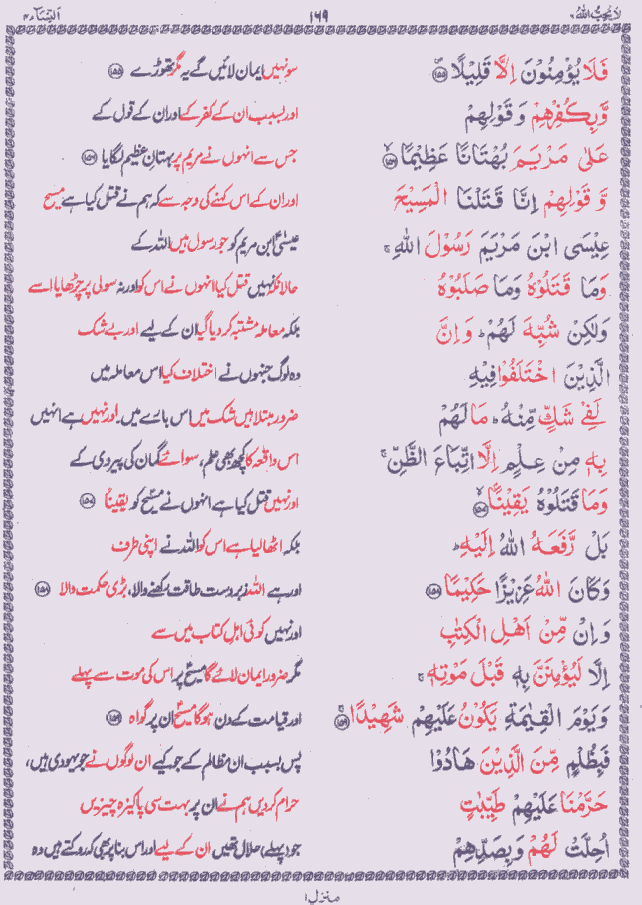 لَا يُحِبُّ اللهُ ٦
١٦٩
اَلنِّسَآء ٤
فَلَا يُؤْمِنُوْنَ اِلَّا قَلِيْلًا ﴿١٥٥﴾
سو نہیں ایمان لائیں گے یہ مگر تھوڑے ﴿١٥٥﴾
وَّبِكُفْرِهِمْ وَقَوْلِهِمْ
اور بسبب ان کے کفر کے اور ان کے قول کے
عَلٰى مَرْيَمَ بُهْتَانًا عَظِيْمًا ﴿١٥٦﴾
جس سے انہوں نے مریم پر بہتانِ عظیم لگایا ﴿١٥٦﴾
وَّقَوْلِهِمْ اِنَّا قَتَلْنَا الْمَسِيْحَ
اور ان کے اس کہنے کی وجہ سے کہ ہم نے قتل کیا ہے مسیح
عِيْسَى ابْنَ مَرْيَمَ رَسُوْلَ اللهِ ۚ
عیسیٰ ابن مریم کو جو رسول ہیں اللہ کے
وَمَا قَتَلُوْهُ وَمَا صَلَبُوْهُ
حالانکہ نہیں قتل کیا انہوں نے اس کو اور نہ سولی پر چڑھایا اسے
وَلٰكِنْ شُبِّهَ لَهُمْ ؕ وَاِنَّ
بلکہ معاملہ مشتبہ کردیا گیا ان کے لیے اور بے شک
الَّذِيْنَ اخْتَلَفُوْا فِيْهِ
وہ لوگ جنہوں نے اختلاف کیا اس معاملہ میں
لَفِيْ شَكٍّ مِّنْهُ ؕ مَا لَهُمْ
ضرور مبتلا ہیں شک میں اس بارے میں۔ اور نہیں ہے انہیں
بِهٖ مِنْ عِلْمٍ اِلَّا اتِّبَاعَ الظَّنِّ ۚ
اس واقعہ کا کچھ بھی علم، سوائے گمان کی پیروی کے
وَمَا قَتَلُوْهُ يَقِيْنًا ﴿١٥٧﴾
اور نہیں قتل کیا ہے انہوں نے مسیح کو یقیناً ﴿١٥٧﴾
بَلْ رَّفَعَهُ اللهُ اِلَيْهِ ؕ
بلکہ اٹھا لیا ہے اس کو اللہ نے اپنی طرف
وَكَانَ اللهُ عَزِيْزًا حَكِيْمًا ﴿١٥٨﴾
اور ہے اللہ زبردست طاقت رکھنے والا، بڑی حکمت والا ﴿١٥٨﴾
وَاِنْ مِّنْ اَهْلِ الْكِتٰبِ
اور نہیں کوئی اہلِ کتاب میں سے
اِلَّا لَيُؤْمِنَنَّ بِهٖ قَبْلَ مَوْتِهٖ ۚ
مگر ضرور ایمان لائے گا مسیح پر اس کی موت سے پہلے
وَيَوْمَ الْقِيٰمَةِ يَكُوْنُ عَلَيْهِمْ شَهِيْدًا ﴿١٥٩﴾
اور قیامت کے دن ہوگا مسیح ان پر گواہ ﴿١٥٩﴾
فَبِظُلْمٍ مِّنَ الَّذِيْنَ هَادُوْا
پس بسبب ان مظالم کے جو کیے ان لوگوں نے جو یہودی ہیں،
حَرَّمْنَا عَلَيْهِمْ طَيِّبٰتٍ
حرام کردیں ہم نے ان پر بہت سی پاکیزہ چیزیں
اُحِلَّتْ لَهُمْ وَبِصَدِّهِمْ
جو (پہلے) حلال تھیں ان کے لیے اور اس بنا پر بھی کہ روکتے ہیں وہ
منزل ١